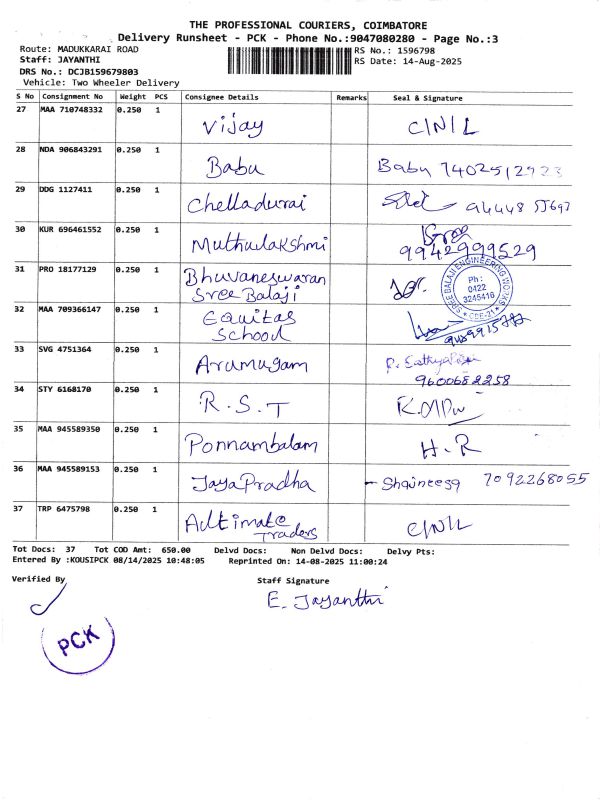 THE PROFESSIONAL COURIERS, COIMBATORE
Delivery Runsheet - PCK - Phone No.:9047080280 - Page No.:3
Route: MADUKKARAI ROAD RS No.: 1596798
Staff: JAYANTHI RS Date: 14-Aug-2025
DRS No.: DCJB159679803
Vehicle: Two Wheeler Delivery
S No Consignment No Weight PCS Consignee Details Remarks Seal & Signature
27 MAA 710748332 0.250 1 Vijay C/N/L
28 NDA 906843291 0.250 1 Babu Babu
29 DDG 1127411 0.250 1 Chelladurai
30 KUR 696461552 0.250 1 Muthulakshmi
9942999529
31 PRO 18177129 0.250 1 Bhuvaneswaran
Sree Balaji
SREE BALAJI ENGINEERING WORKS
Ph :
0422
3245416
* CBE-21 *
32 MAA 709366147 0.250 1 Equitas
School
33 SVG 4751364 0.250 1 Arumugam
9600682258
34 STY 6168170 0.250 1 R.S.T
35 MAA 945589350 0.250 1 Ponnambalam H.R
36 MAA 945589153 0.250 1 JayaPradha 7092268055
37 TRP 6475798 0.250 1 Aultimate
Traders C/N/L
Tot Docs: 37 Tot COD Amt: 650.00 Delvd Docs: Non Delvd Docs: Delvy Pts:
Entered By :KOUSIPCK 08/14/2025 10:48:05 Reprinted On: 14-08-2025 11:00:24
Verified By Staff Signature
E. Jayanthi
PCK